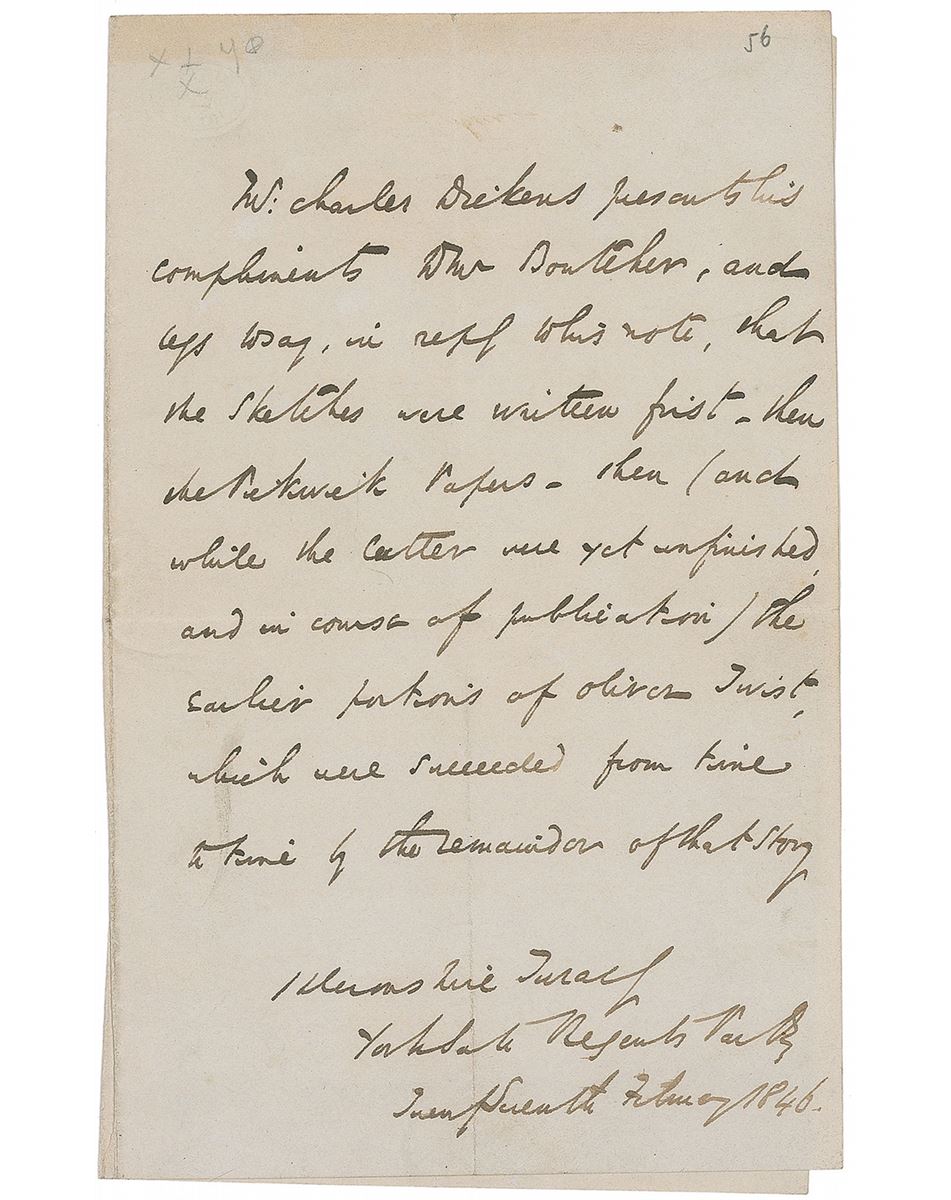 56
Mr. Charles Dickens presents his
compliments to Mr Boutcher, and
begs to say, in reply to his note, that
the Sketches were written first - then
the Pickwick Papers - then (and
while the latter were yet unfinished,
and in course of publication) the
earlier portions of Oliver Twist,
which were succeeded from time
to time by the remainder of that story
1 Devonshire Terrace
York Gate Regents Park
Twenty Seventh February 1846.